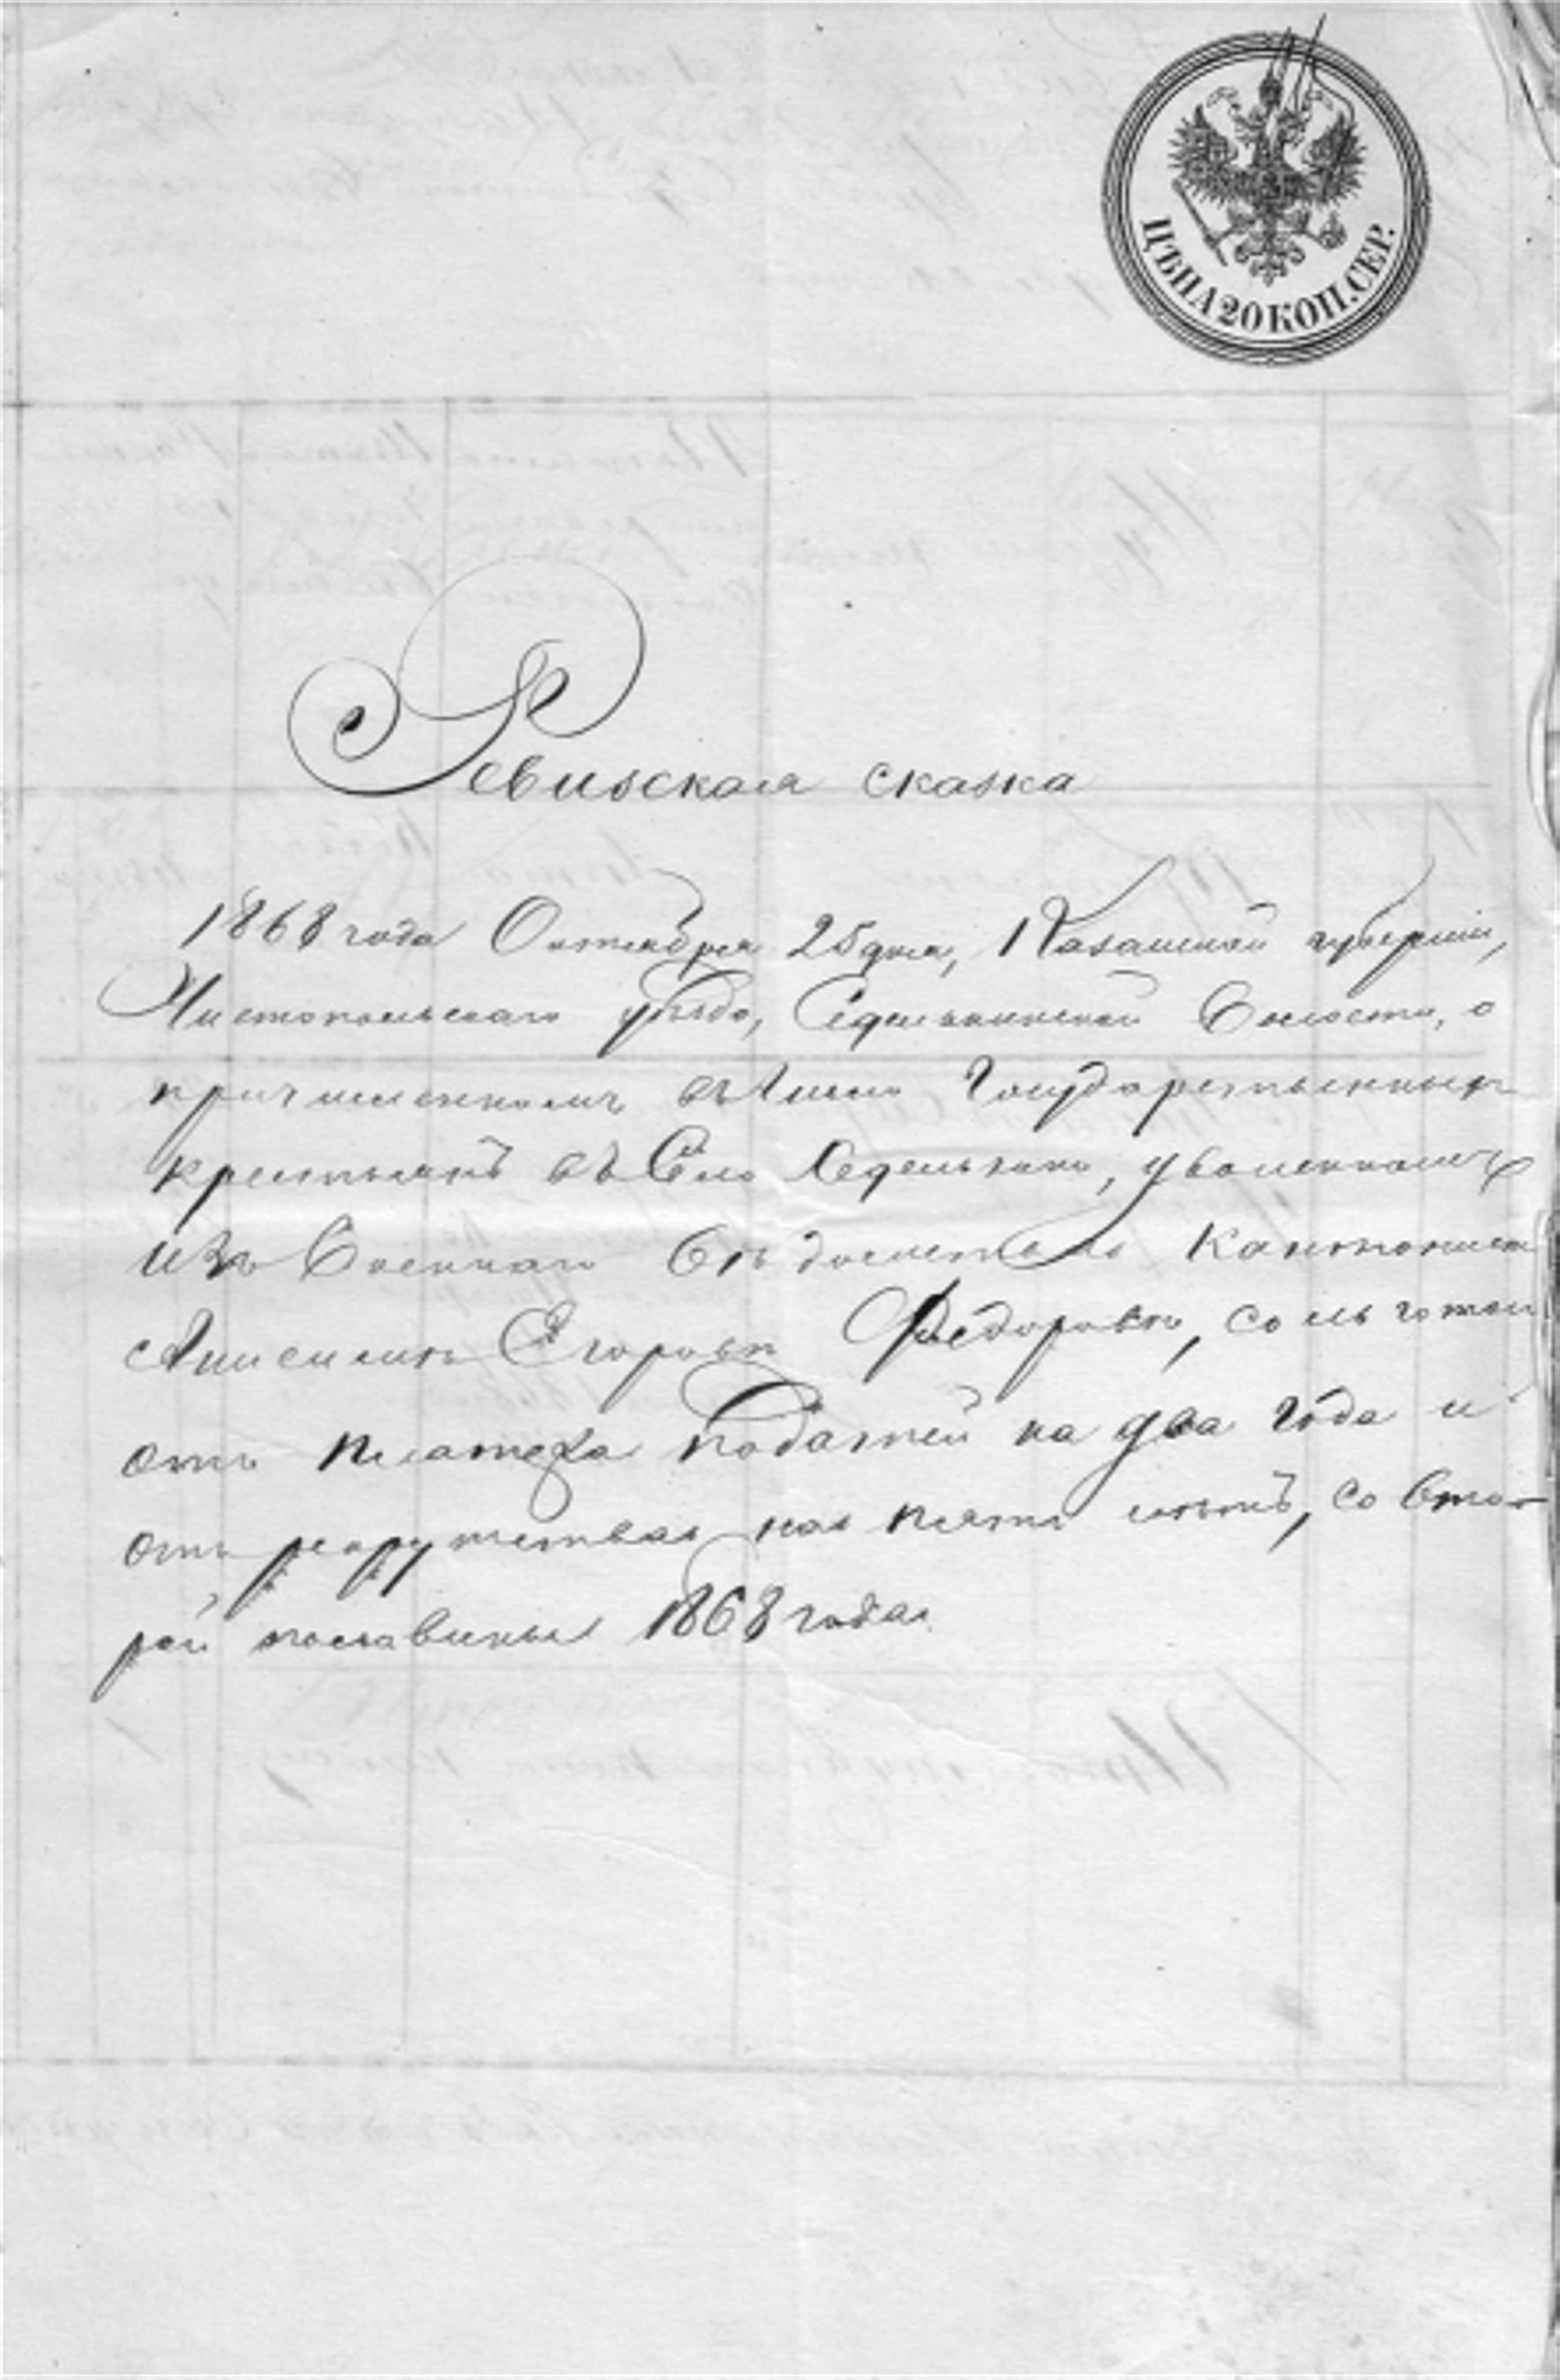 ЦѢНА 20 КОП. СЕР.
Ревизская сказка
1868 года Октября 25 дня, Казанской губернiи,
Чистопольскаго уѣзда, Седелькинской Волости, о
причисленномъ въ число Государственныхъ
крестьянъ въ Село Седелькино, уволенномъ
изъ Военнаго вѣдомства Кантонистѣ
Анисимѣ Егоровѣ Федоровѣ, со льготой
отъ платежа податей на два года и
отъ рекрутства на пять лѣтъ, со вто-
рой половины 1868 года